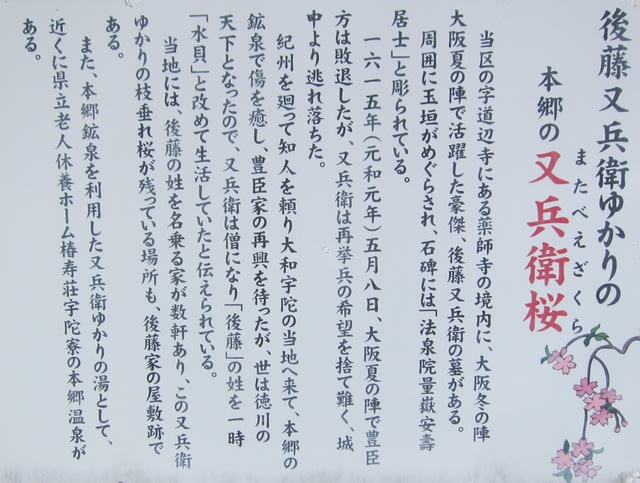 後藤又兵衛ゆかりの
本郷の又兵衛桜
またべえざくら
当区の字道辺寺にある薬師寺の境内に、大阪冬の陣
大阪夏の陣で活躍した豪傑、後藤又兵衛の墓がある。
周囲に玉垣がめぐらされ、石碑には「法泉院量嶽安壽
居士」と彫られている。
一六一五年（元和元年）五月八日、大阪夏の陣で豊臣
方は敗退したが、又兵衛は再挙兵の希望を捨て難く、城
中より逃れ落ちた。
紀州を廻って知人を頼り大和宇陀の当地へ来て、本郷の
鉱泉で傷を癒し、豊臣家の再興を待ったが、世は徳川の
天下となったので、又兵衛は僧になり「後藤」の姓を一時
「水貝」と改めて生活していたと伝えられている。
当地には、後藤の姓を名乗る家が数軒あり、この又兵衛
ゆかりの枝垂れ桜が残っている場所も、後藤家の屋敷跡で
ある。
また、本郷鉱泉を利用した又兵衛ゆかりの湯として、
近くに県立老人休養ホーム椿寿荘宇陀寮の本郷温泉が
ある。